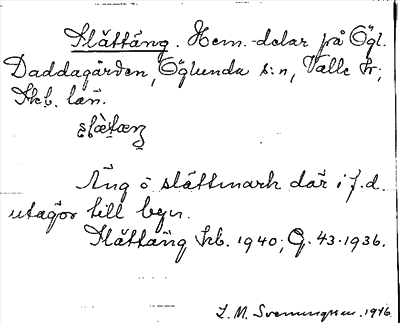 Slättäng. Hem.-delar på Ögl.
Daddagården, Öglunda s:n, Valle hr;
Skb. län.
Äng o. slåttmark där i f.d.
utägor till byn.
Slättäng Jrb. 1940; G. 43. 1936.
L. M. Svenungsson. 1946.